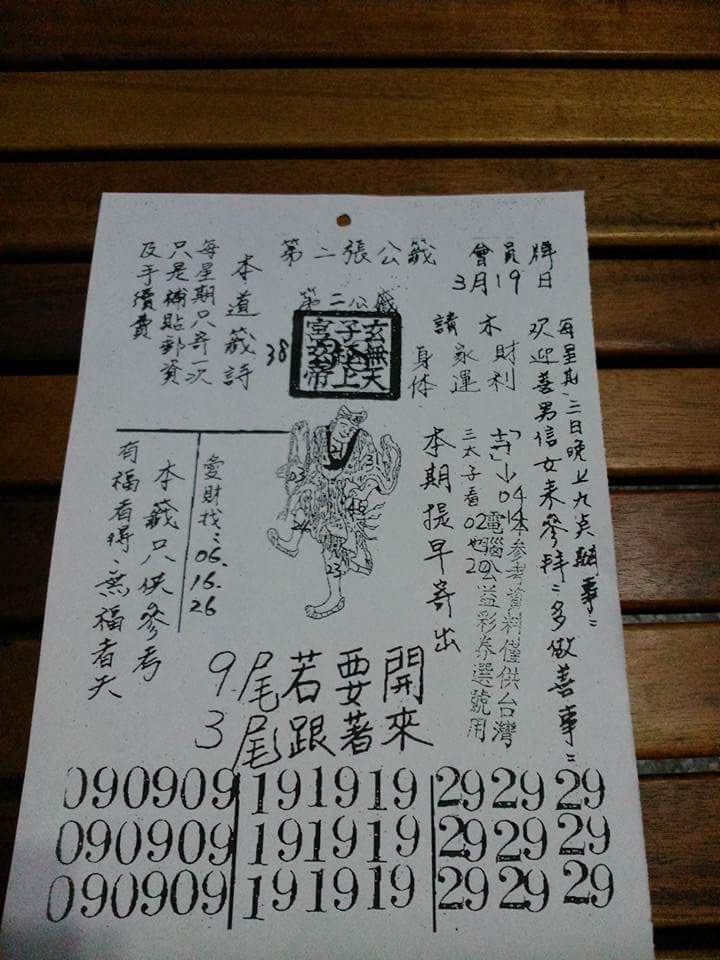 會員牌
3月19日
第二張公籤
第二公籤
玄無天
子極上
宮
帝
38
本道籤詩
每星期只寄一次
只是補貼郵資
及手續費
財利
家運
身体
每星期二三日晚上九点辦事
欢迎善男信女來參拜多做善事
參考資料僅供台灣
電腦公益彩券選號用
三太子看
04
02
20
本期提早寄出
愛財找
06.
16.
26
本籤只供參考
有福者得、無福者失
9尾若要開
3尾跟著來
090909 191919 29 29 29
090909 191919 29 29 29
090909 191919 29 29 29